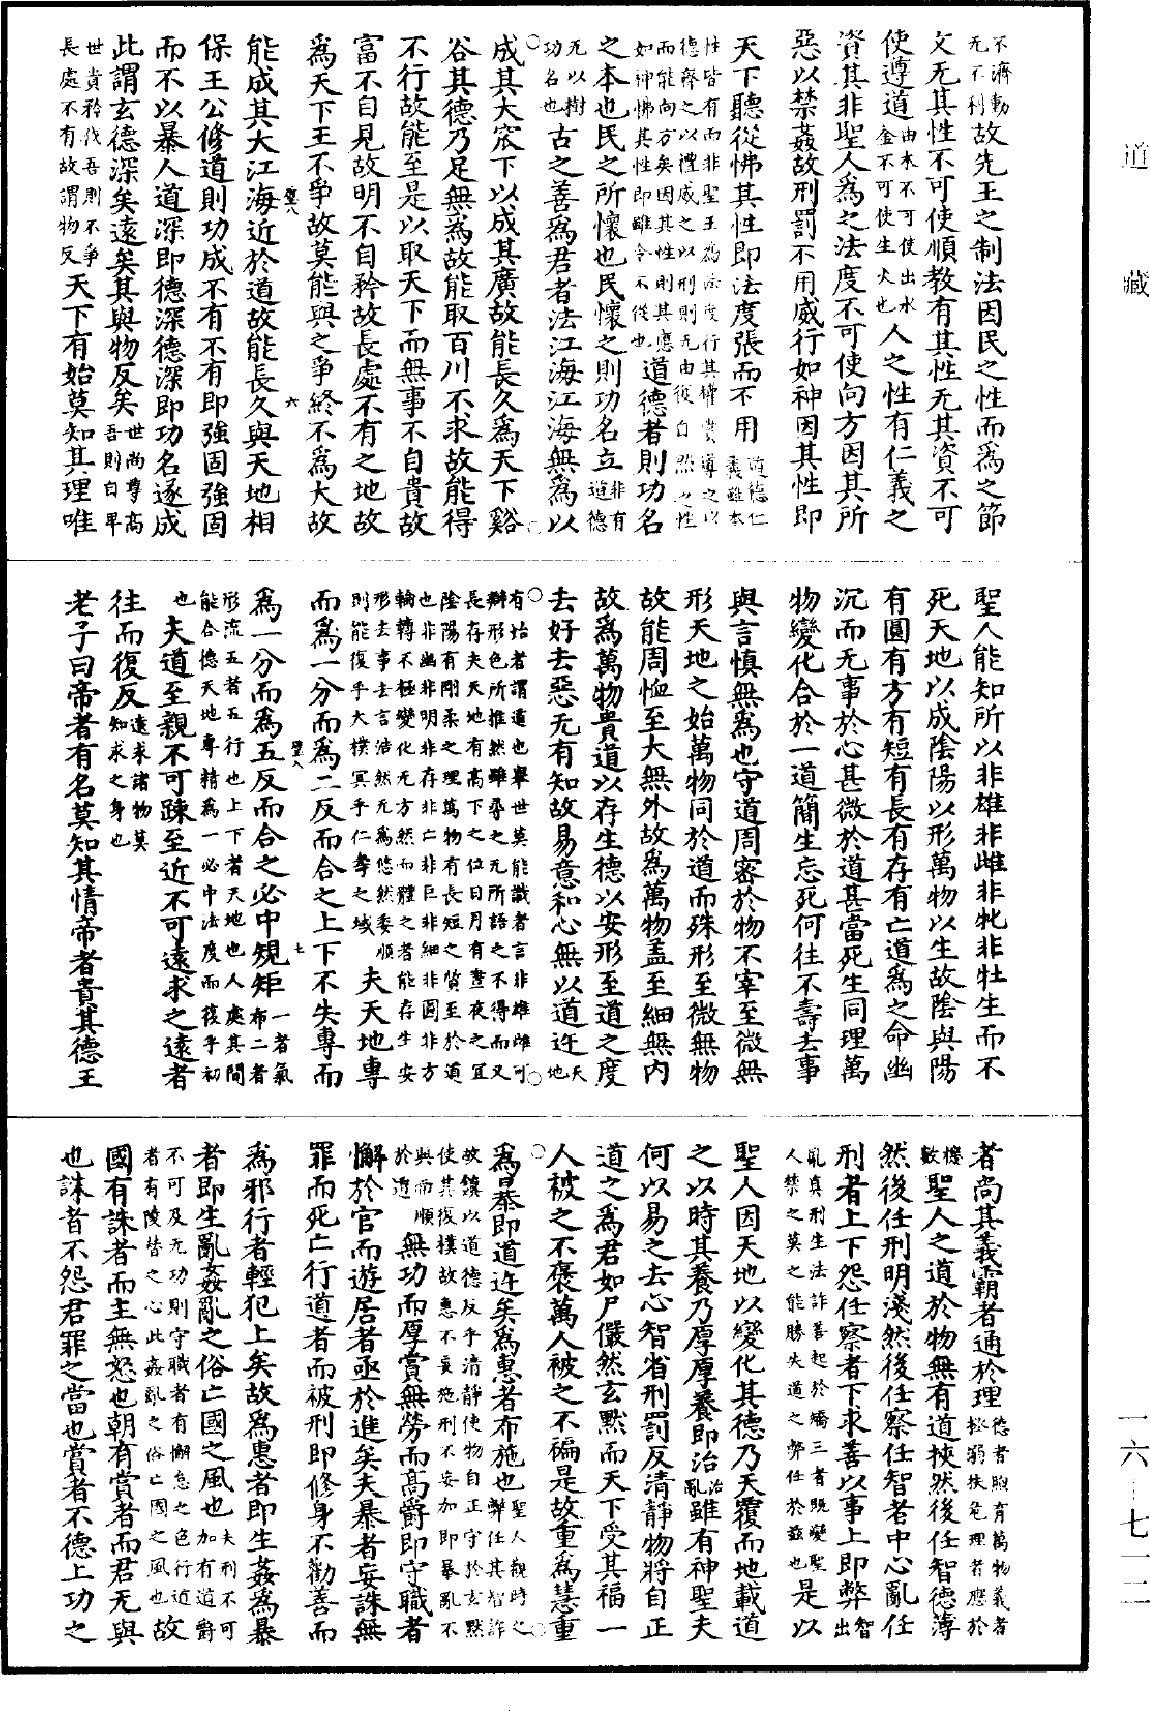 道藏
不濟動无不利故先王之制法因民之性而為之節
文无其性不可使順教有其性无其資不可
使遵道由水不可使出水金不可使生火也人之性有仁義之
資其非聖人為之法度不可使向方因其所
惡以禁姦故刑罰不用威行如神因其性即
天下聽從怫其性即法度張而不用道德仁義雖本
性皆有而非聖王為法度行其權賞導之以德齊之以禮威之以刑則无由從自然之性
而能向方矣因其性則其應如神怫其性即雖令不從也道德者則功名
之本也民之所懷也民懷之則功名立非有道德
无以樹功名也古之善為君者法江海江海無為以
成其大窊下以成其廣故能長久為天下谿
谷其德乃足無為故能取百川不求故能得
不行故能至是以取天下而無事不自貴故
富不自見故明不自矜故長處不有之地故
為天下王不爭故莫能與之爭終不為大故
六
能成其大江海近於道故能長久與天地相
保王公修道則功成不有不有即強固強固
而不以暴人道深即德深德深即功名遂成
此謂玄德深矣遠矣其與物反矣世尚尊高吾則自卑
世貴矜伐吾則不爭長處不有故謂物反天下有始莫知其理唯
聖人能知所以非雄非雌非牝非牡生而不
死天地以成陰陽以形萬物以生故陰與陽
有圓有方有短有長有存有亡道為之命幽
沉而无事於心甚微於道甚當死生同理萬
物變化合於一道簡生忘死何往不壽去事
與言慎無為也守道周密於物不宰至微無
形天地之始萬物同於道而殊形至微無物
故能周恤至大無外故為萬物盖至細無内
故為萬物貴道以存生德以安形至道之度
去好去惡无有知故易意和心無以道迕天地
有始者謂道也舉世莫能識者言非雄雌可辯形色所推然雖尋之无所語之不得而又
長存夫天地有高下之位日月有晝夜之宜陰陽有剛柔之理萬物有長短之質至於道
也非幽非明非存非亡非巨非細非圓非方輪轉不極變化无方然而體之者能存生安
形去事去言浩然无為悠然委順則能復乎大樸冥乎仁壽之域夫天地專
而為一分而為二反而合之上下不失專而
七
為一分而為五反而合之必中規矩一者氣布二者
形流五者五行也上下者天地也人處其間能合德天地專精為一必中法度而復乎初
也夫道至親不可踈至近不可遠求之遠者
往而復反遠求諸物莫知求之身也
老子曰帝者有名莫知其情帝者貴其德王
者尚其義霸者通於理德者煦育萬物義者拯弱扶危理者應於
機數聖人之道於物無有道挾然後任智德薄
然後任刑明淺然後任察任智者中心亂任
刑者上下怨任察者下求善以事上即弊智出
亂真刑生法詐善起於矯三者既變聖人禁之莫之能勝失道之弊任於茲也是以
聖人因天地以變化其德乃天覆而地載道
之以時其養乃厚厚養即治治亂雖有神聖夫
何以易之去心智省刑罰反清靜物將自正
道之為君如尸儼然玄默而天下受其福一
人被之不褒萬人被之不褊是故重為慧重
為暴即道迕矣為惠者布施也聖人觀時之弊任其智詐
故鎮以道德反乎清靜使物自正守於玄默使其復樸故惠不妄施刑不妄加即暴亂不
與而順於道無功而厚賞無勞而高爵即守職者
懈於官而遊居者亟於進矣夫暴者妄誅無
罪而死亡行道者而被刑即修身不勸善而
為邪行者輕犯上矣故為惠者即生姦為暴
者即生亂姦亂之俗亡國之風也夫刑不可加有道爵
不可及无功則守職者有懈怠之色行道者有陵替之心此姦亂之俗亡國之風也故
國有誅者而主無怒也朝有賞者而君无與
也誅者不怨君罪之當也賞者不德上功之
一六—七一二